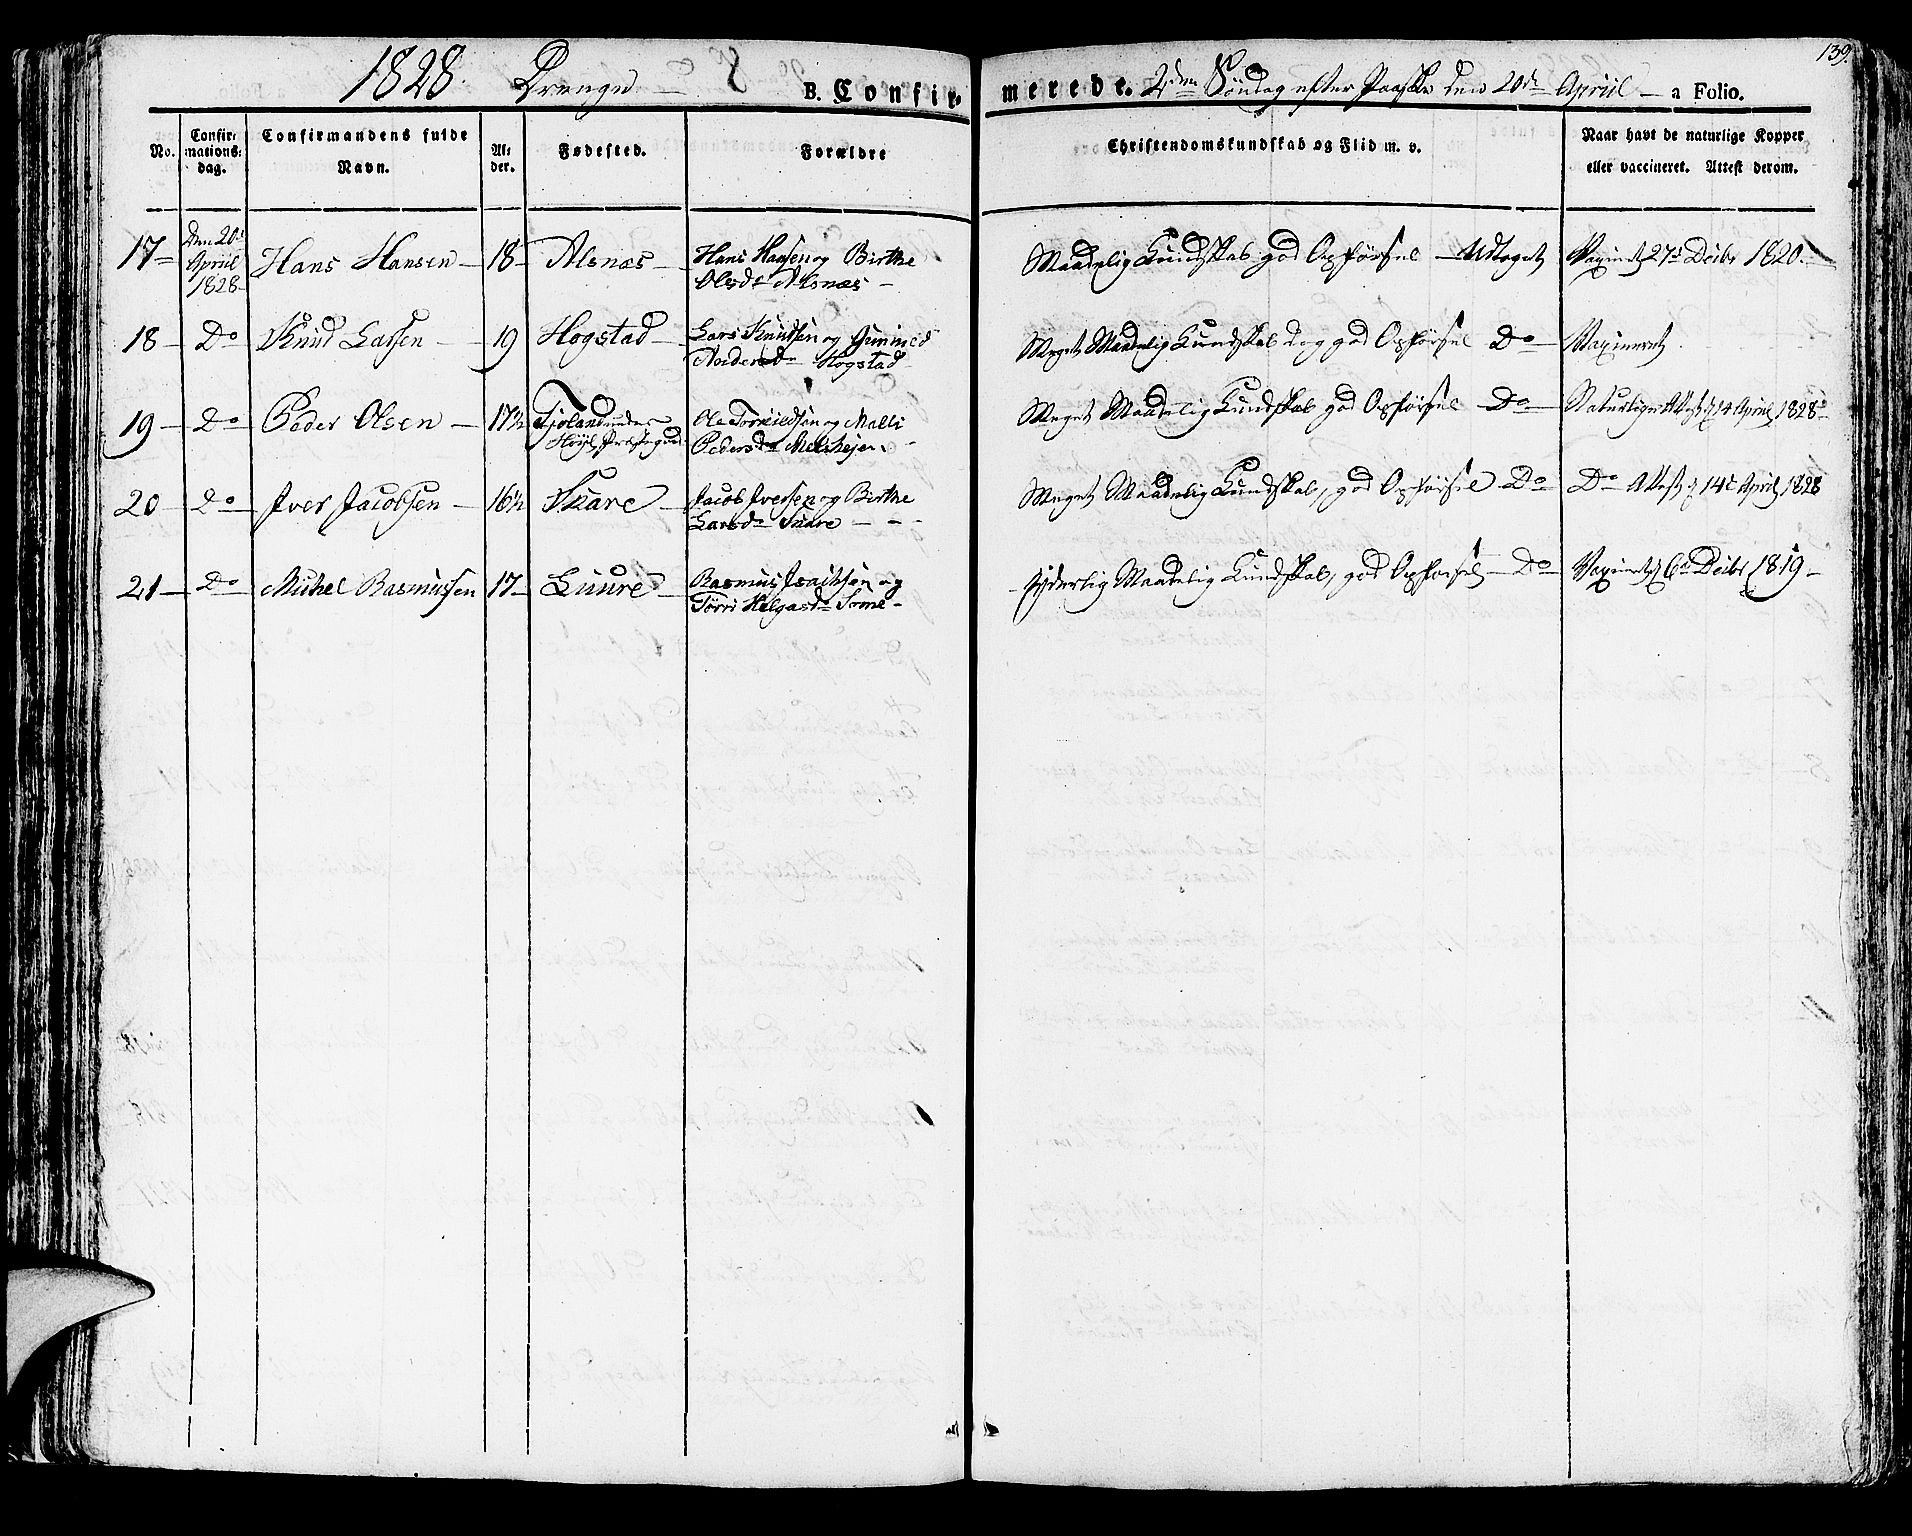 1828. Drenge – B. Confir-
merede. 2den Søndag efter Paaske den 20de April – a Folio.
139.
No.
Confir-
mations-
dag.
Confirmandens fulde
Navn.
Al-
der.
Fødested.
Forældre
Christendomskundskab og Flid m. v.
Naar havt de naturlige Kopper
eller vaccineret. Attest derom.
17 – Den 20de April 1828 – Hans Hansen – 18 – Alsnæs – Hans Hansen og Birthe
Olsdr Alsnæs –
Maadelig Kundskab god Opførsel – Udtoget Vaxinert 27de Decbr 1820.
18 – Do Knud Larsen – 19 Hogstad – Lars Knudsen og Gunnild
Hogstad
Meget Maadelig Kundskab dog god Opførsel Do – Vaxineret
19 – Do – Peder Olsen – 17½ Tjøland under
Høyl. Præstegield
Ole og Malli
Pedersdr
Meget Maadelig Kundskab god Opførsel – Do – Naturlige Attest 14 April 1828
20 – Do – Iver Jacobsen – 16½ Skare – Jacob Iversen og Birthe
Larsdr Skare – – –
Meget Maadelig Kundskab, god Opførsel – Do – Do Attest 14de April 1828
21 – Do – Michel Rasmussen 17 – Luure – Rasmus Isachsen og
Helgasdr Some –
Maadelig Kundskab, god Opførsel – Do – Vaxinert 6te Decbr 1819 –